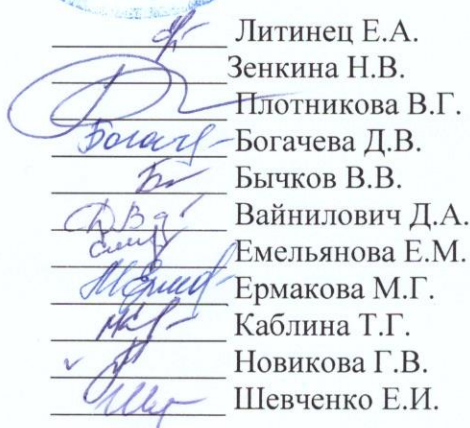 Литинец Е.А.
Зенкина Н.В.
Плотникова В.Г.
Богачева Д.В.
Бычков В.В.
Вайнилович Д.А.
Емельянова Е.М.
Ермакова М.Г.
Каблина Т.Г.
Новикова Г.В.
Шевченко Е.И.